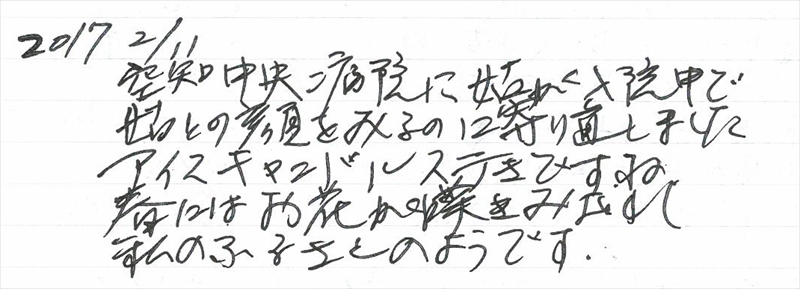 2017 2/11
空知中央病院に姑が入院中で
姑との顔をみるのに寄り道しました
アイスキャンドルステキですね
春にはお花が咲きみだれて
私のふるさとのようです.